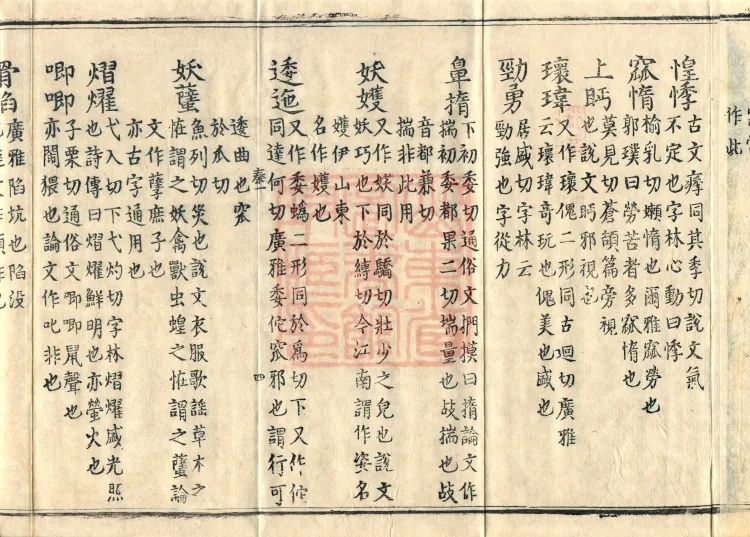 作此
惶悸 古文痵同其季切說文氣
不定也字林心動曰悸
窳惰 榆乳切嬾惰也爾雅窳勞也
郭璞曰勞苦者多窳惰也
上眄 莫見切蒼頡篇旁視
也說文眄邪視也
瓌瑋 又作瓌傀二形同古迴切廣雅
云瓌瑋奇玩也傀美也盛也
勁勇 居盛切字林云
勁強也字從力
鼻揣 下初委切通俗文捫摸曰揣論文作
揣初委都果二切揣量也敁揣也敁
音都兼切
揣非此用
妖孆 又作㚣同於驕切壯少之皃也說文
妖巧也下於縛切今江南謂作姿名
孆伊山東
名作孆也
逶迤 又作委蟡二形同於為切下又作佗
同達何切廣雅委佗窊邪也謂行可
逶曲也窊
於瓜切
四
妖蠥 魚列切災也說文衣服歌謠草木之
恠謂之妖禽獸虫蝗之恠謂之蠥論
文作孽庶子也
亦古字通用也
熠燿 弋入切下弋灼切字林熠燿盛光照
也詩傳曰熠燿鮮明也亦螢火也
唧唧 子栗切通俗文唧唧鼠聲也
亦鬧猥也論文作叱非也
骨陷 廣雅陷坑也陷没